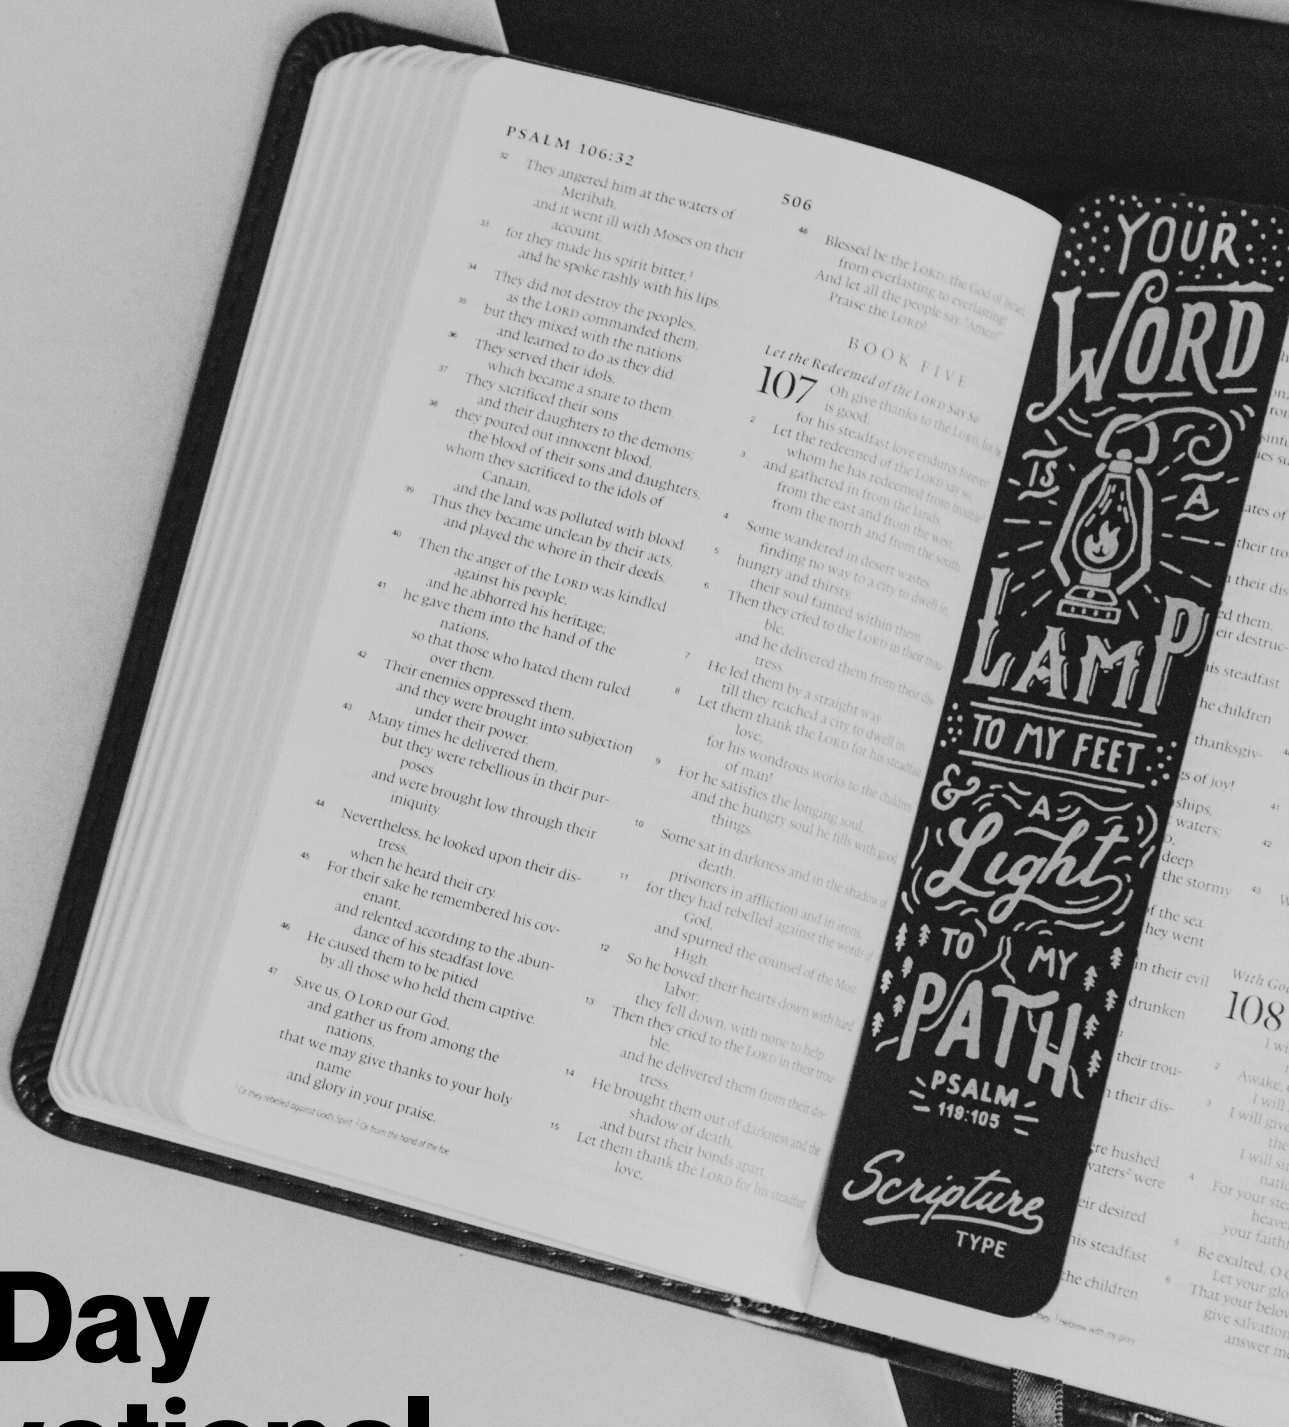 PSALM 106:32
506
32 They angered him at the waters of
Meribah,
and it went ill with Moses on their
account,
33 for they made his spirit bitter,¹
and he spoke rashly with his lips.
34 They did not destroy the peoples,
as the LORD commanded them,
35 but they mixed with the nations
and learned to do as they did.
36 They served their idols,
which became a snare to them.
37 They sacrificed their sons
and their daughters to the demons;
38 they poured out innocent blood,
the blood of their sons and daughters,
whom they sacrificed to the idols of
Canaan,
and the land was polluted with blood.
39 Thus they became unclean by their acts,
and played the whore in their deeds.
40 Then the anger of the LORD was kindled
against his people,
and he abhorred his heritage;
41 he gave them into the hand of the
nations,
so that those who hated them ruled
over them.
42 Their enemies oppressed them,
and they were brought into subjection
under their power.
43 Many times he delivered them,
but they were rebellious in their pur-
poses
and were brought low through their
iniquity.
44 Nevertheless, he looked upon their dis-
tress,
when he heard their cry.
45 For their sake he remembered his cov-
enant,
and relented according to the abun-
dance of his steadfast love.
46 He caused them to be pitied
by all those who held them captive.
47 Save us, O LORD our God,
and gather us from among the
nations,
that we may give thanks to your holy
name
and glory in your praise.
¹ Or they rebelled against God's Spirit ² Or from the hand of the foe
48 Blessed be the LORD, the God of Israel,
from everlasting to everlasting!
And let all the people say, "Amen!"
Praise the LORD!
BOOK FIVE
Let the Redeemed of the LORD Say So
107 Oh give thanks to the LORD, for he
is good,
for his steadfast love endures forever!
2 Let the redeemed of the LORD say so,
whom he has redeemed from trouble
3 and gathered in from the lands,
from the east and from the west,
from the north and from the south.
4 Some wandered in desert wastes,
finding no way to a city to dwell in;
5 hungry and thirsty,
their soul fainted within them.
6 Then they cried to the LORD in their trou-
ble,
and he delivered them from their dis-
tress.
7 He led them by a straight way
till they reached a city to dwell in.
8 Let them thank the LORD for his steadfast
love,
for his wondrous works to the children
of man!
9 For he satisfies the longing soul,
and the hungry soul he fills with good
things.
10 Some sat in darkness and in the shadow of
death,
prisoners in affliction and in irons,
11 for they had rebelled against the words of
God,
and spurned the counsel of the Most
High.
12 So he bowed their hearts down with hard
labor;
they fell down, with none to help.
13 Then they cried to the LORD in their trou-
ble,
and he delivered them from their dis-
tress.
14 He brought them out of darkness and the
shadow of death,
and burst their bonds apart.
15 Let them thank the LORD for his steadfast
love,
YOUR
WORD
IS A
LAMP
TO MY FEET
& A
Light
TO MY
PATH
PSALM
119:105
Scripture
TYPE
ates of
their tro
their dis
ed them,
eir destruc-
his steadfast
he children
thanksgiv-
gs of joy!
ships,
waters;
deep.
the stormy
of the sea.
hey went
in their evil
drunken
their trou-
their dis-
ere hushed.
waters² were
eir desired
his steadfast
the children
they ² Hebrew with my glory
41
42
43
With God
108
2 Awake,
I will
3 I will give
the
I will sin
natio
4 For your ste
heave
your faith
5 Be exalted, O G
Let your glo
6 That your belov
give salvation
answer me
Day
votional